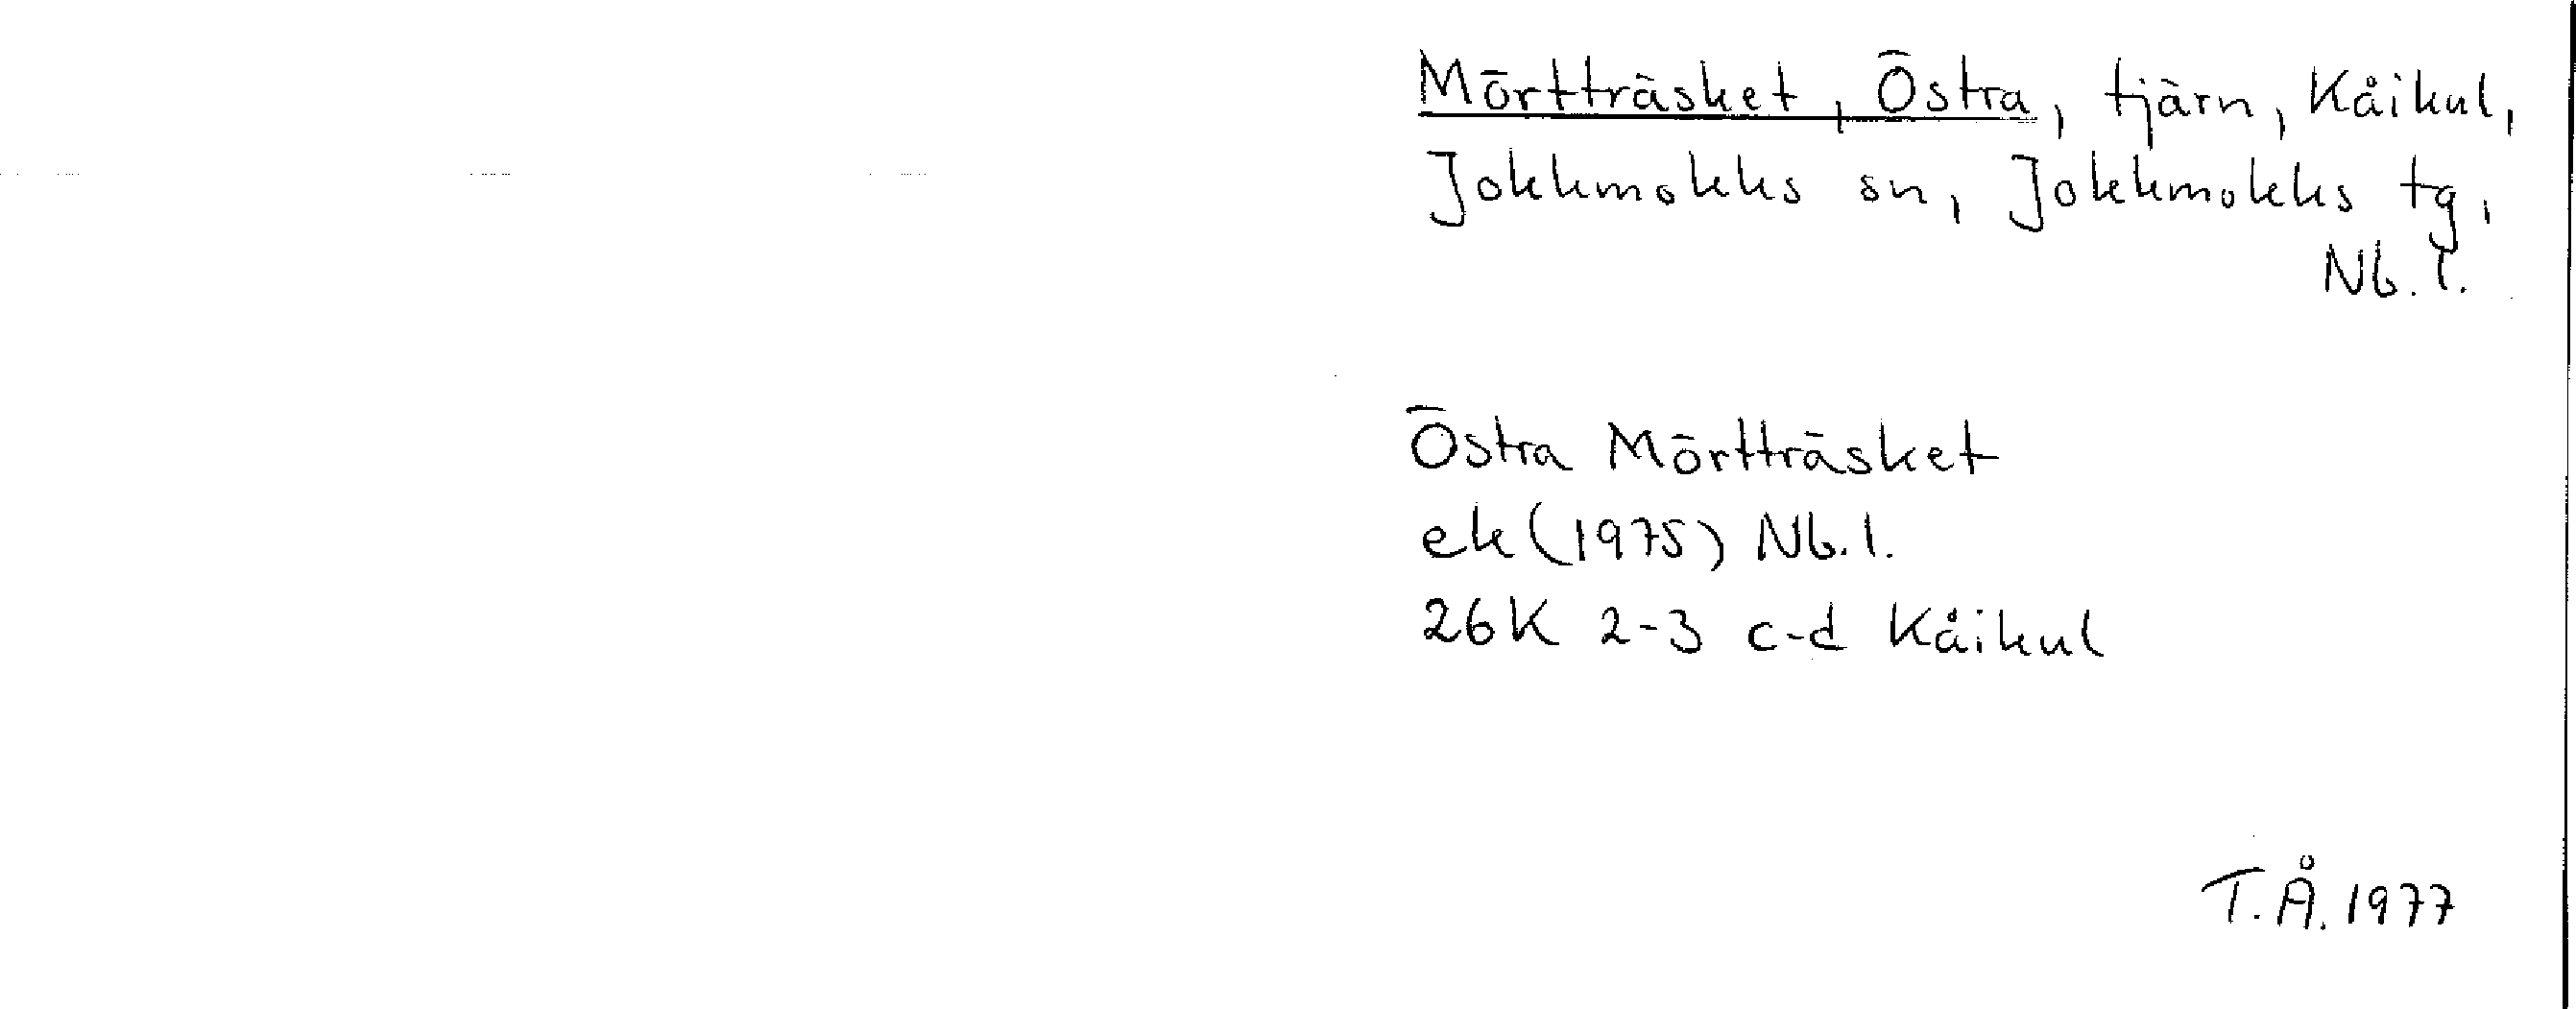 Mörtträsket, Östra, tjärn, Kåikul,
Jokkmokks sn, Jokkmokks tg,
Nb. l.
Östra Mörtträsket
ek (1975) Nb. l.
26K 2-3 c-d Kåikul
T.Å. 1977